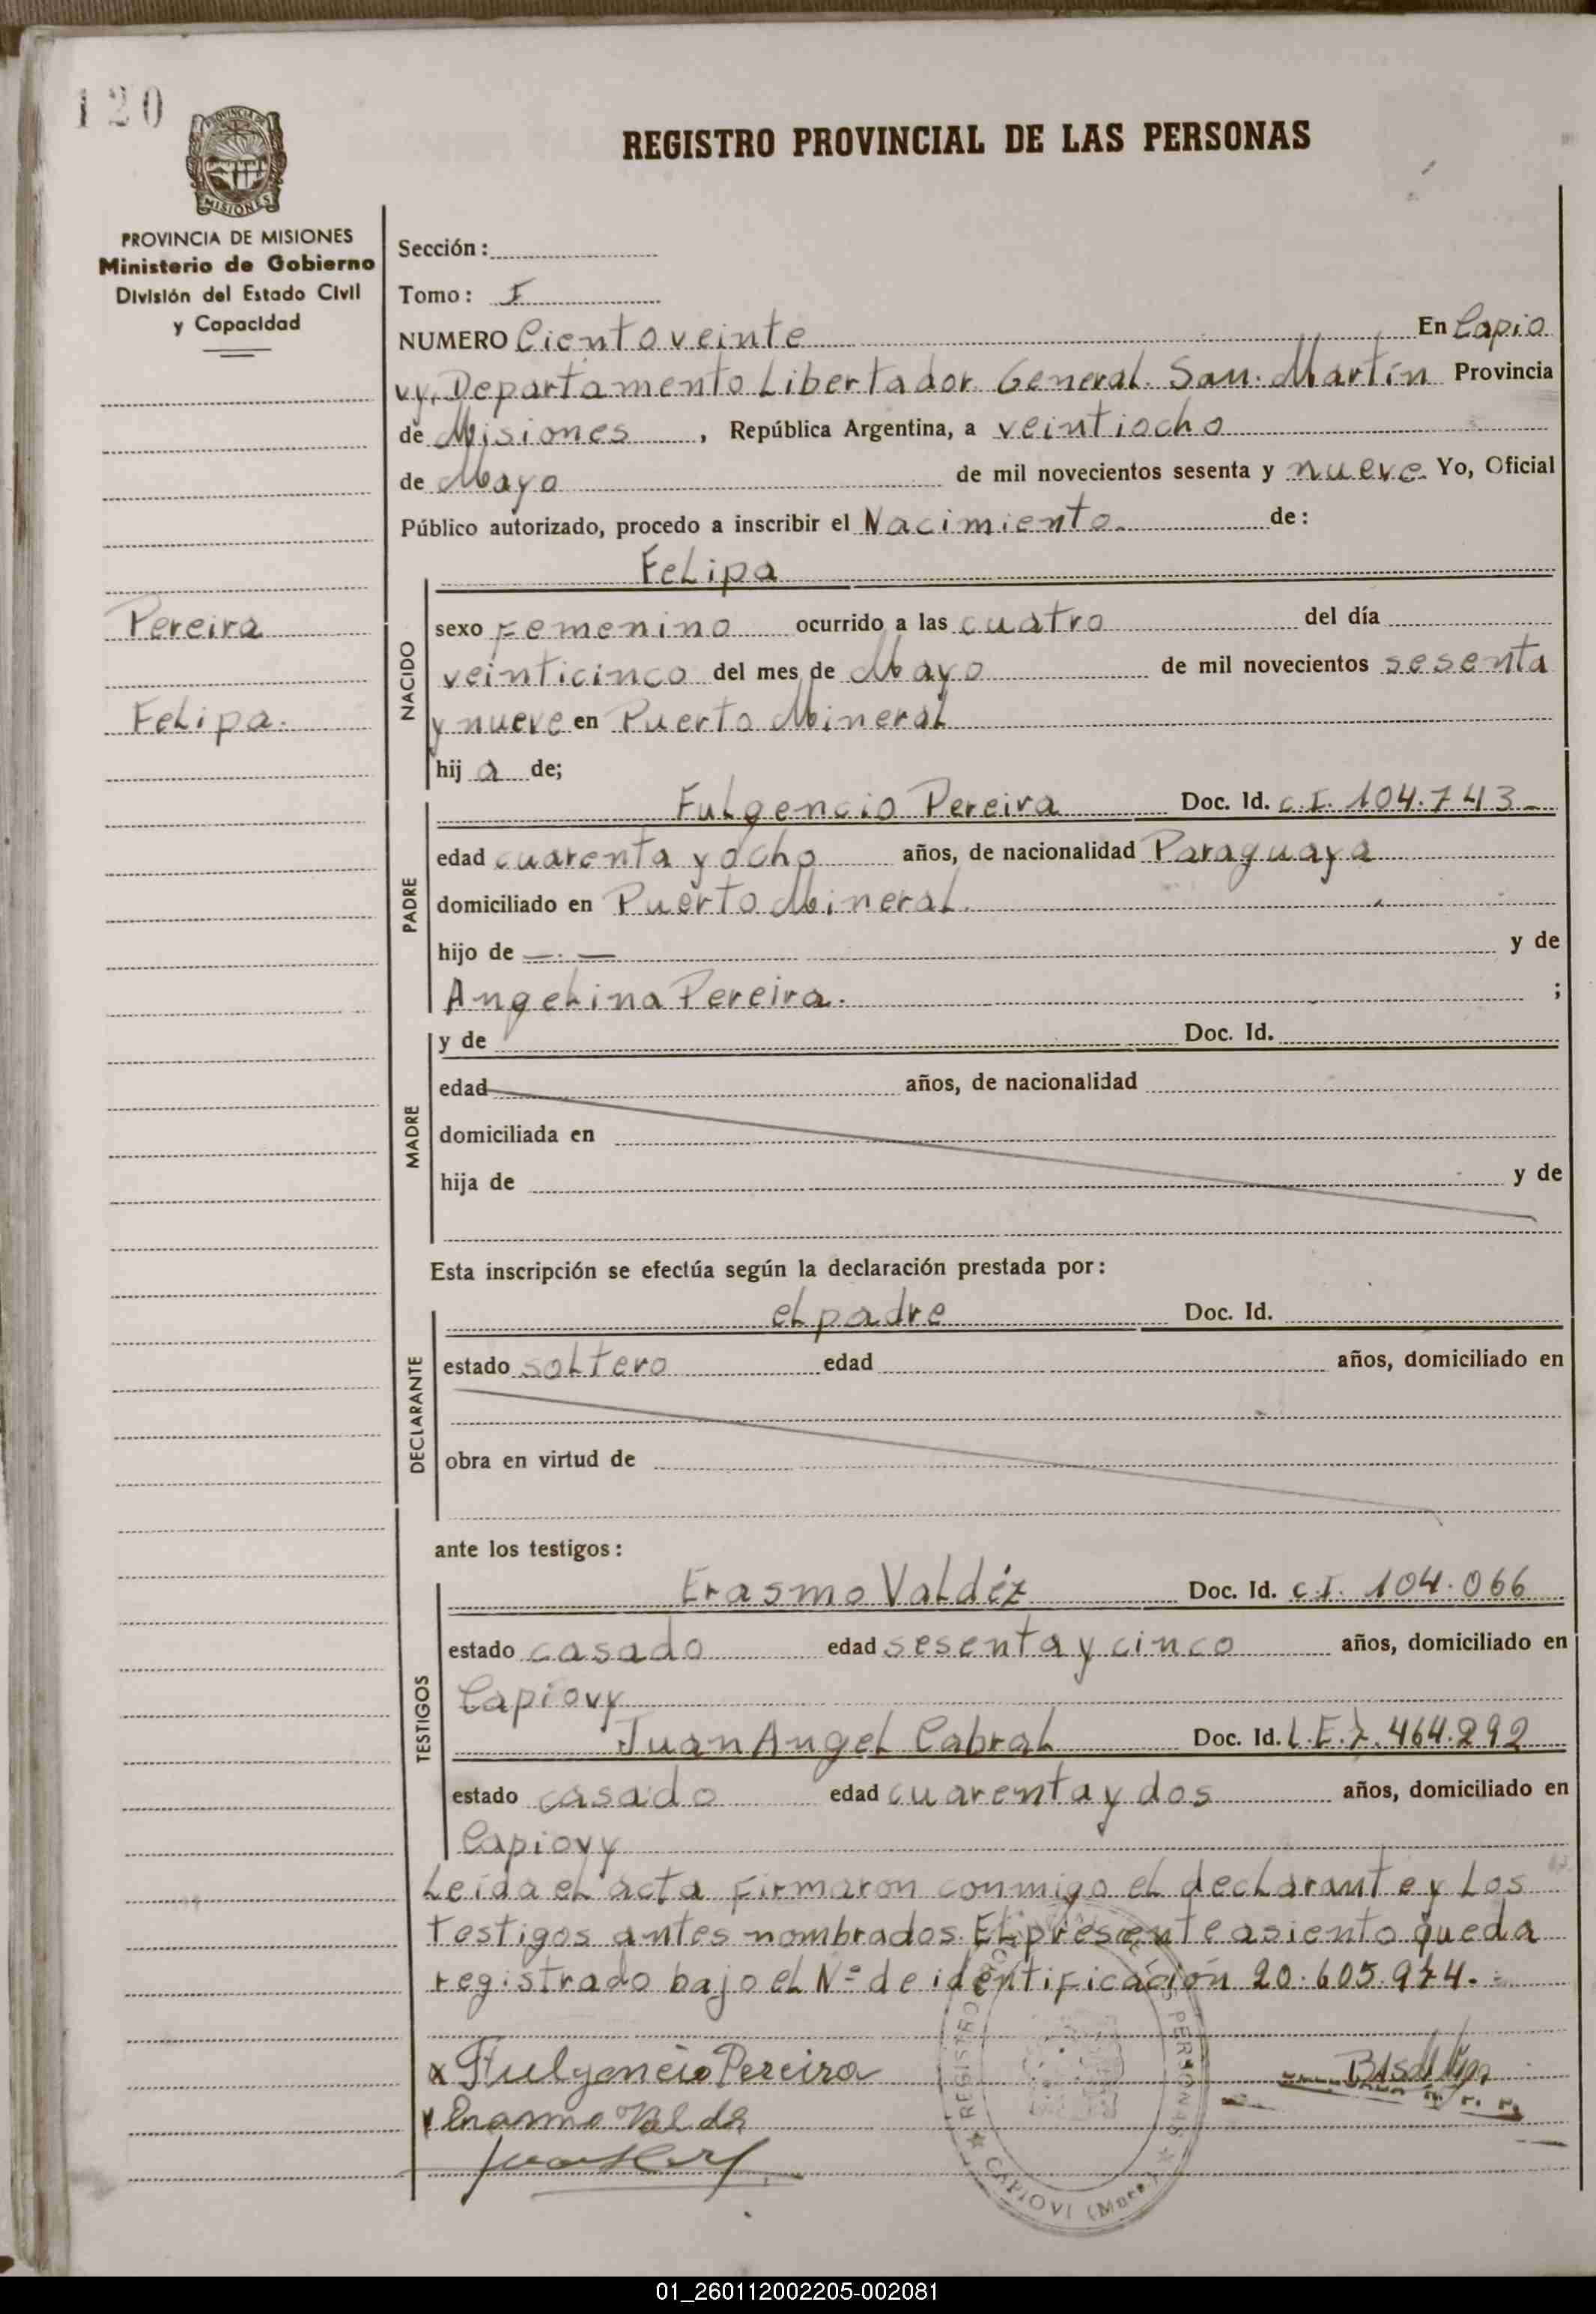 120
PROVINCIA DE
MISIONES
REGISTRO PROVINCIAL DE LAS PERSONAS
PROVINCIA DE MISIONES
Ministerio de Gobierno
División del Estado Civil
y Capacidad
Sección:
Tomo: I
NUMERO Ciento veinte En Capio
vy, Departamento Libertador General San Martín Provincia
de Misiones, República Argentina, a veintiocho
de Mayo de mil novecientos sesenta y nueve Yo, Oficial
Público autorizado, procedo a inscribir el Nacimiento. de:
Pereira
Felipa.
NACIDO
Felipa
sexo Femenino ocurrido a las cuatro del día
veinticinco del mes de Mayo de mil novecientos sesenta
y nueve en Puerto Mineral
hij a de;
PADRE
Fulgencio Pereira Doc. Id. C.I. 104.743-
edad cuarenta y ocho años, de nacionalidad Paraguaya
domiciliado en Puerto Mineral.
hijo de —.— y de
Angelina Pereira. ;
MADRE
y de Doc. Id.
edad años, de nacionalidad
domiciliada en
hija de y de
Esta inscripción se efectúa según la declaración prestada por:
DECLARANTE
el padre Doc. Id.
estado soltero edad años, domiciliado en
obra en virtud de
ante los testigos:
TESTIGOS
Erasmo Valdéz Doc. Id. C.I. 104.066
estado casado edad sesenta y cinco años, domiciliado en
Capiovy
Juan Angel Cabral Doc. Id. L.E. 7.464.292
estado casado edad cuarenta y dos años, domiciliado en
Capiovy
Leída el acta firmaron conmigo el declarante y los
testigos antes nombrados. El presente asiento queda
registrado bajo el Nº de identificación 20.605.974.-
x Fulgencio Pereira
REGISTRO PERSONAS
CAPIOVI (Mnes.)
01_260112002205-002081